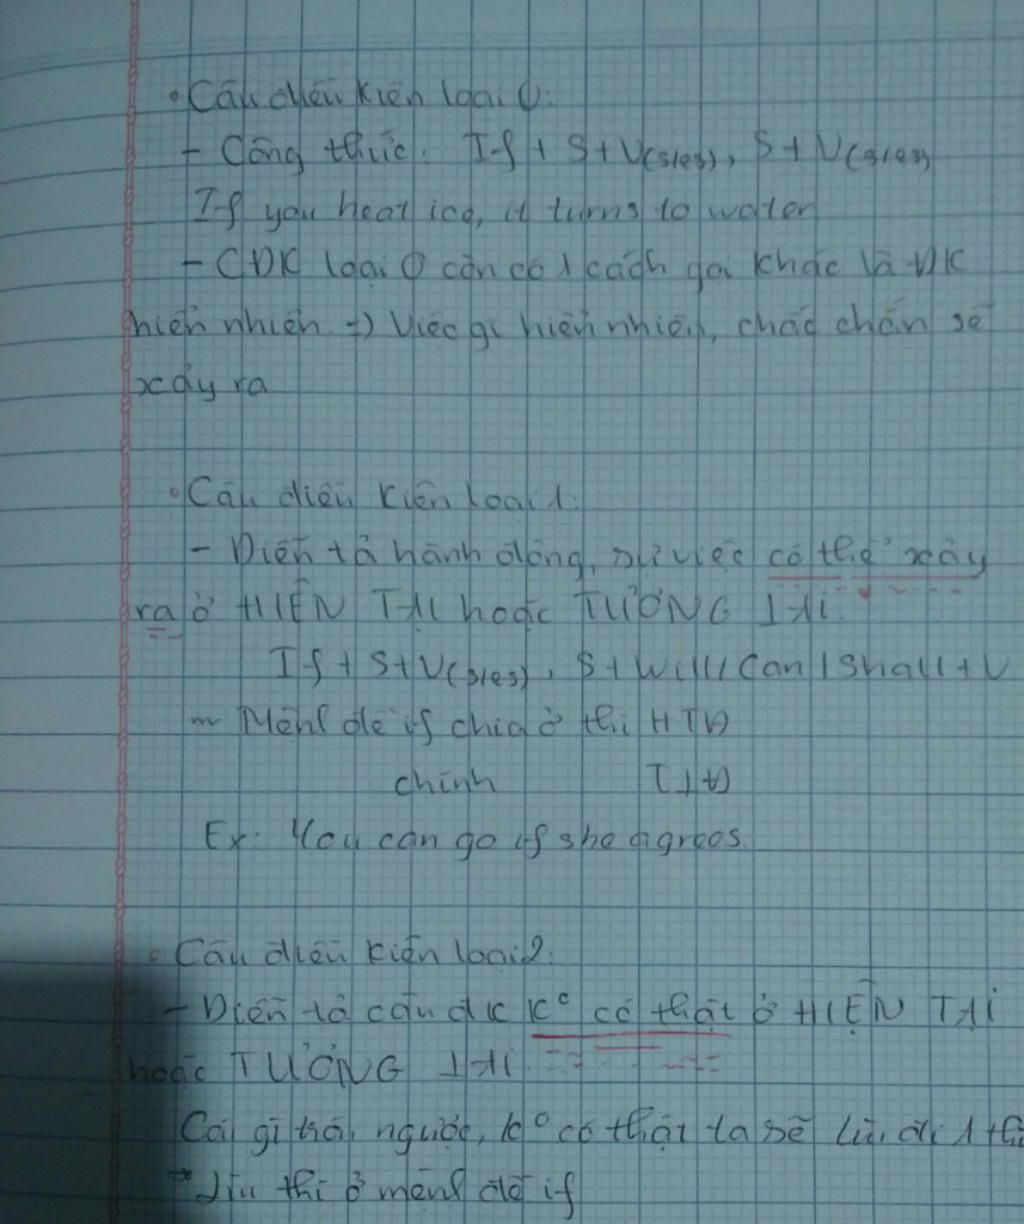 • Câu điều kiện loại 0:
- Công thức: If + S + V(s/es), S + V(s/es)
If you heat ice, it turns to water
- CĐK loại 0 còn có 1 cách gọi khác là ĐK
hiển nhiên => Việc gì hiển nhiên, chắc chắn sẽ
xảy ra
• Câu điều kiện loại 1:
- Diễn tả hành động, sự việc có thể xảy
ra ở HIỆN TẠI hoặc TƯƠNG LAI
If + S + V(s/es), S + Will / Can / Shall + V
~ Mệnh đề if chia ở thì HTĐ
chính TLĐ
Ex: You can go if she agrees.
• Câu điều kiện loại 2:
- Diễn tả câu đk K° có thật ở HIỆN TẠI
hoặc TƯƠNG LAI
Cái gì trái ngược, k° có thật ta sẽ lùi đi 1 thì
Lùi thì ở mệnh đề if